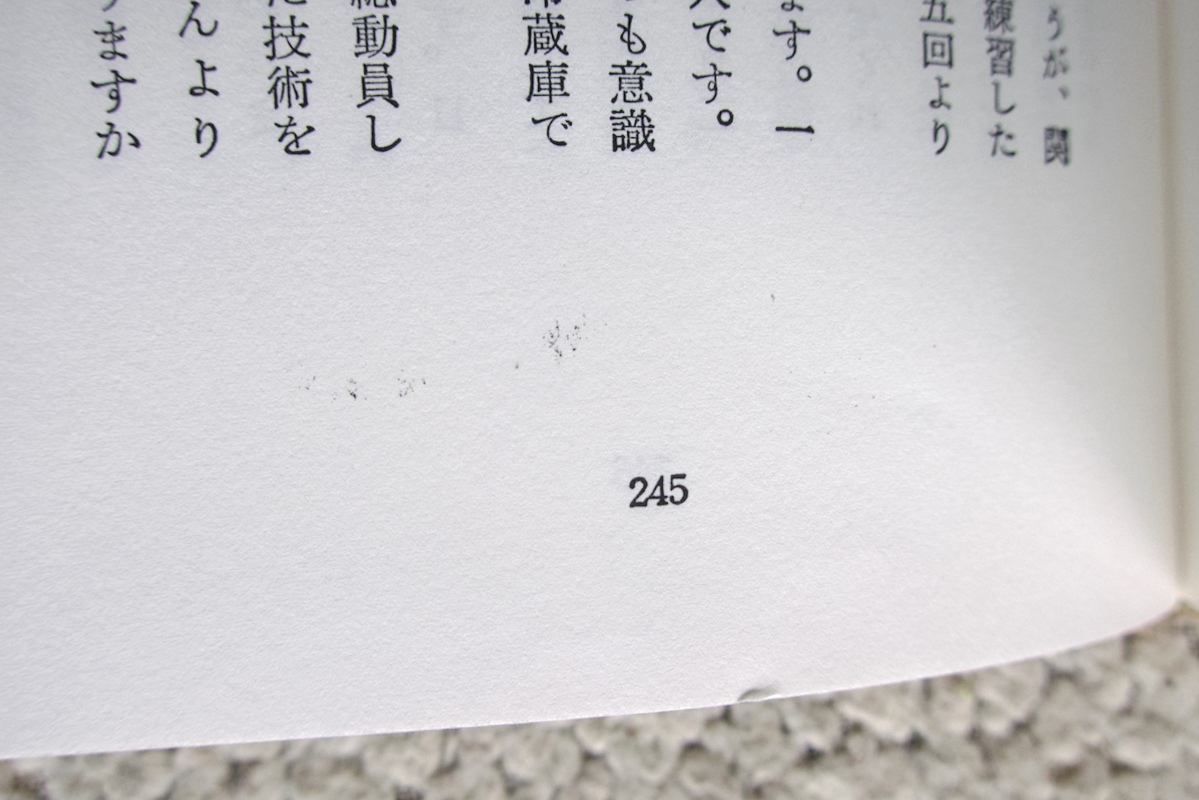 うが、関
練習した
五回より
ます。一
人です。
も意識
冷蔵庫で
総動員し
た技術を
んより
ますか
245